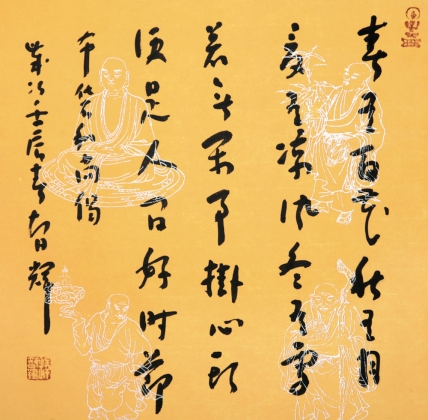 春有百花秋有月
夏有涼风冬有雪
若无闲事掛心头
便是人间好时節
和尚偈
歲次壬辰春智輝